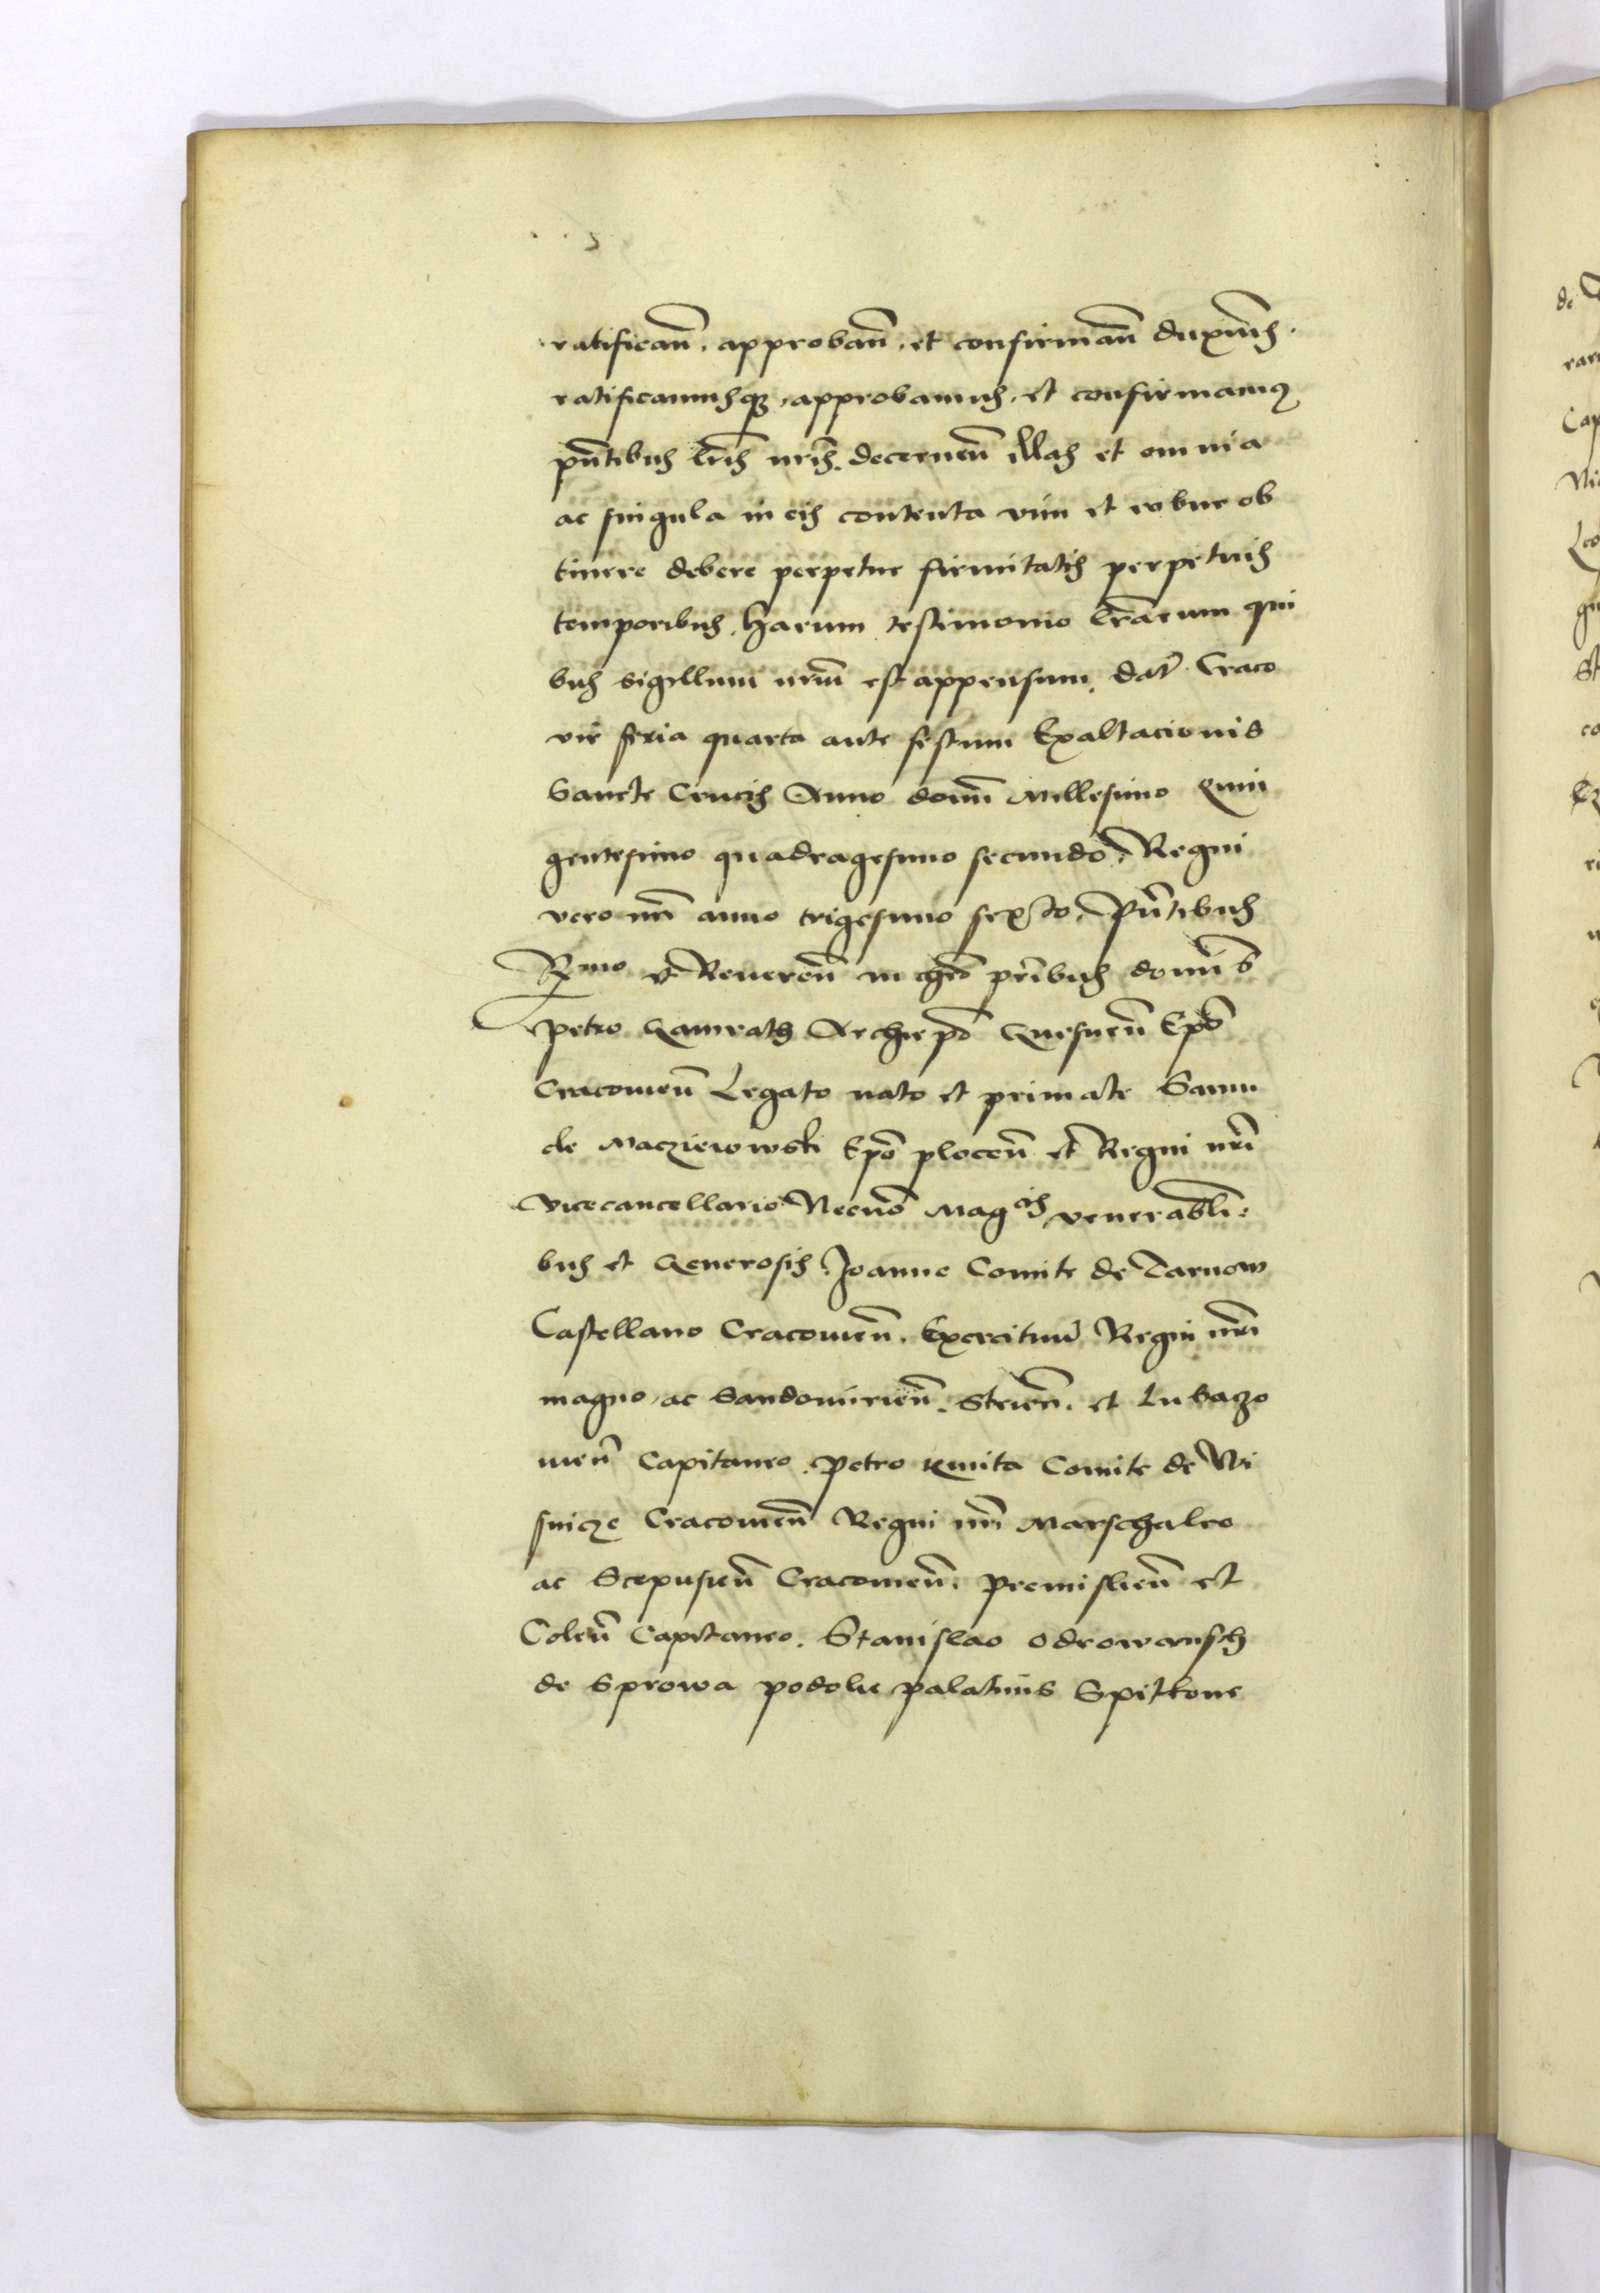 ratifican̄. approban̄. et confirman̄ duxim̄s.
ratificamusq̄ȝ. approbamus. et confirmamus
pn̄tibus lr̄is nr̄is. decernen̄ illas et omnia
ac singula in eis contenta vim et robur ob
tinere debere perpetue firmitatis perpetuis
temporibus. Harum testimonio lr̄arum qui
bus Sigillum nrm̄ est appensum. dat̄ Craco
vie feria quarta ante festum Exaltacionis
Sancte Crucis Anno domī Millesimo Quin
gentesimo quadragesimo secundo. Regni
vero nrī anno trigesimo sexto. Pn̄tibus
Rm̄o et Reueren̄ in chrō prībus domīs
Petro Gamrath Archiepō Gnesnen̄ Epō
Cracouien̄ Legato nato et primate Samu
ele Macziewowski Epō plocen̄ et Regni nrī
Vicecancellario Necnō Mag^cis venerabli:
bus et Generosis. Joanne Comite de Tarnow
Castellano Cracouien̄. Exercituū Regni nrī
magno. ac Sandomirien̄. Strien̄. et Lubaczo
uien̄ Capitaneo. Petro Kmita Comite de Wi
snicze Cracouien̄ Regni nrī Marschalco
ac Scepusien̄ Cracouien̄. Premislien̄ et
Colen̄ Capitaneo. Stanislao Odrowansch
de Sprowa podolie palatinis Spitkone